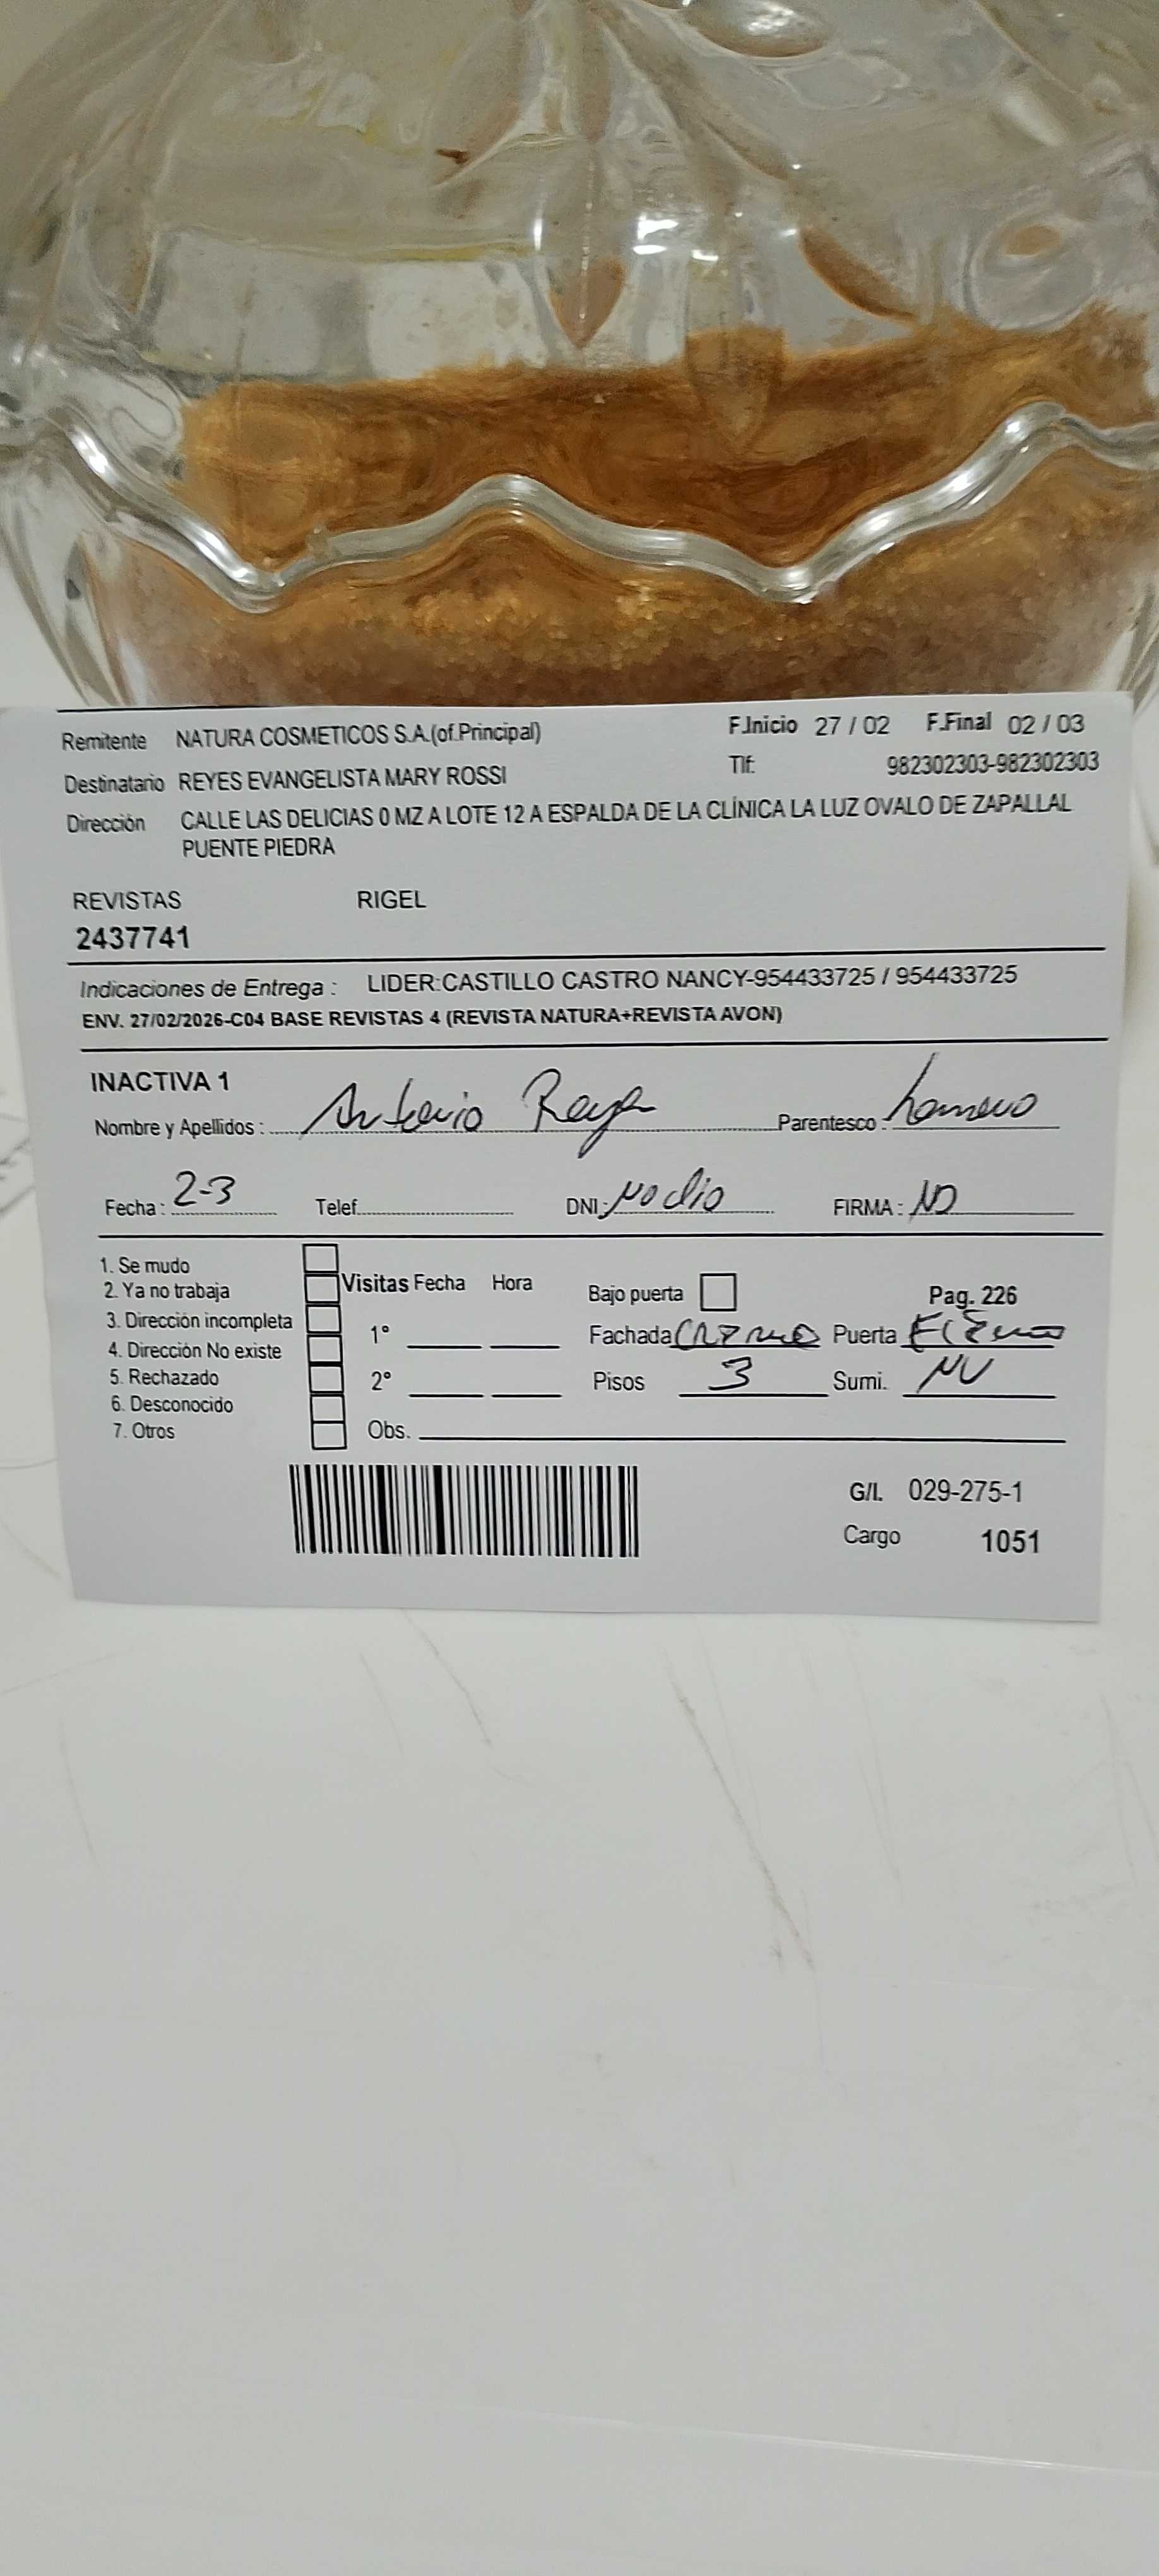 Remitente NATURA COSMETICOS S.A.(of.Principal) F.Inicio 27 / 02 F.Final 02 / 03
Destinatario REYES EVANGELISTA MARY ROSSI Tlf: 982302303-982302303
Dirección CALLE LAS DELICIAS 0 MZ A LOTE 12 A ESPALDA DE LA CLÍNICA LA LUZ OVALO DE ZAPALLAL
PUENTE PIEDRA
REVISTAS RIGEL
2437741
Indicaciones de Entrega : LIDER:CASTILLO CASTRO NANCY-954433725 / 954433725
ENV. 27/02/2026-C04 BASE REVISTAS 4 (REVISTA NATURA+REVISTA AVON)
INACTIVA 1
Nombre y Apellidos : Antonio Reyes Parentesco :
Fecha : 2-3 Telef. DNI: No dio FIRMA : ND
1. Se mudo
2. Ya no trabaja Visitas Fecha Hora Bajo puerta Pag. 226
3. Dirección incompleta 1° Fachada Puerta
4. Dirección No existe
5. Rechazado 2° Pisos 3 Sumi.
6. Desconocido
7. Otros Obs.
G/I. 029-275-1
Cargo 1051